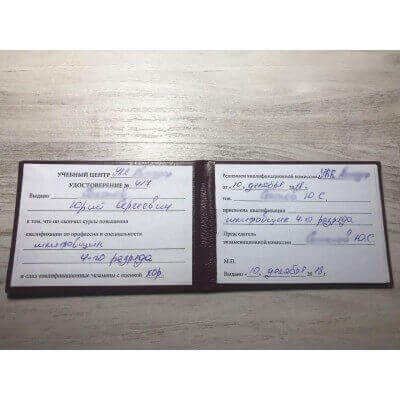 УЧЕБНЫЙ ЦЕНТР УКК
УДОСТОВЕРЕНИЕ № 417
Выдано
Юрий Сергеевич
в том, что он окончил курсы повышения
квалификации по профессии и специальности
шлифовщик
4-го разряда
и сдал квалификационные экзамены с оценкой хор.
Решением квалификационной комиссии УКК
от „10„ декабря 2018 г.
тов. Ю.С.
присвоена квалификация
шлифовщик 4-го разряда
Председатель
экзаменационной комиссии Ю.С
М.П.
Выдано „10„ декабря 2018 г.